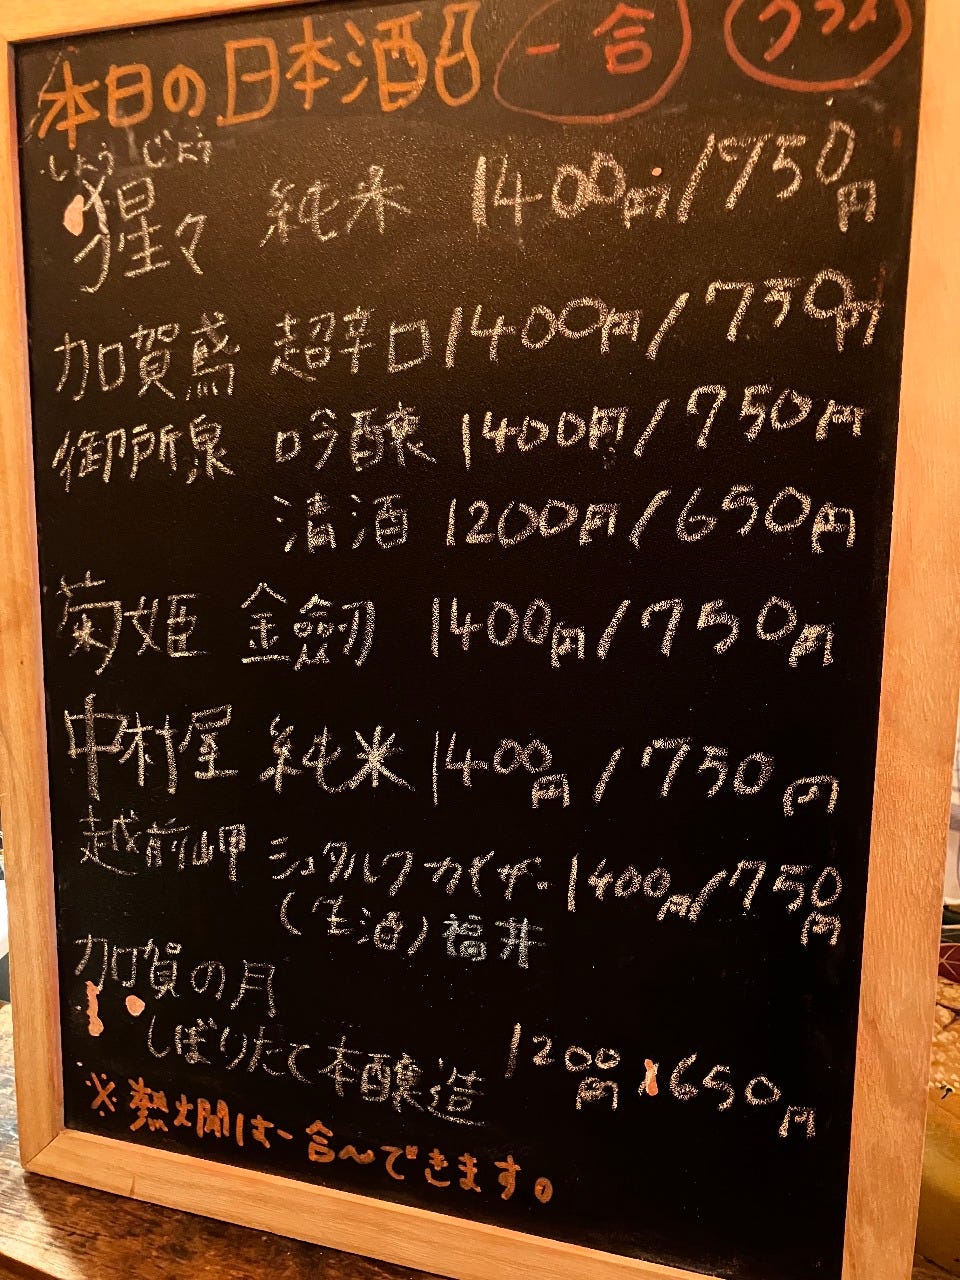 本日の日本酒 一合 グラス
しょうじょう
猩々 純米 1400円/750円
加賀鳶 超辛口 1400円/750円
御所泉 吟醸 1400円/750円
清酒 1200円/650円
菊姫 金劔 1400円/750円
中村屋 純米 1400円/750円
越前岬 シュタルクカイザー 1400円/750円
(生酒)福井
加賀の月
しぼりたて本醸造 1200円/650円
※熱燗は一合〜できます。